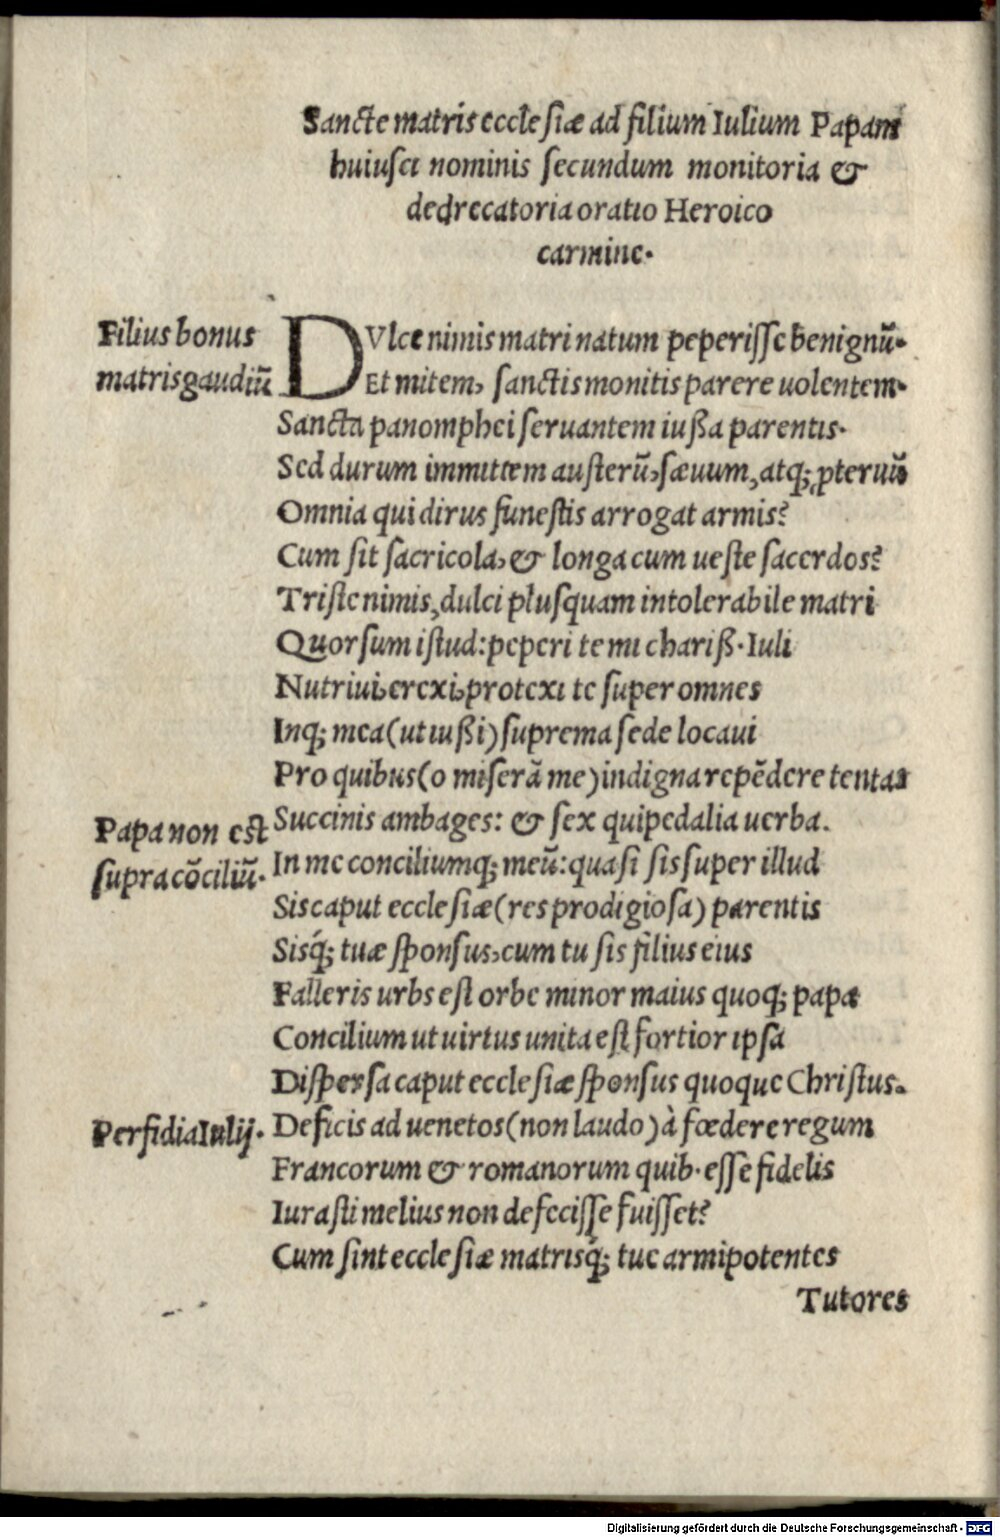 Sancte matris ecclesiæ ad filium Iulium Papam
huiusci nominis secundum monitoria &
dedrecatoria oratio Heroico
carmine.
Filius bonus
matris gaudiũ
DVlce nimis matri natum peperisse benignũ.
Et mitem, sanctis monitis parere uolentem.
Sancta panomphei seruantem iußa parentis.
Sed durum immittem austerũ, sæuum, atq; ꝓteruũ
Omnia qui dirus funestis arrogat armis?
Cum sit sacricola, & longa cum ueste sacerdos?
Triste nimis, dulci plusquam intolerabile matri
Quorsum istud: peperi te mi chariß. Iuli
Nutriui, erexi, protexi te super omnes
Inq; mea (ut iußi) suprema sede locaui
Pro quibus (o miserã me) indigna repẽdere tentas
Papa non est
supra cõciliũ.
Succinis ambages: & sex quipedalia uerba.
In me conciliumq; meũ: quasi sis super illud
Sis caput ecclesiæ (res prodigiosa) parentis
Sisq́; tuæ sponsus, cum tu sis filius eius
Falleris urbs est orbe minor maius quoq; papa
Concilium ut uirtus unita est fortior ipsa
Dispersa caput ecclesiæ sponsus quoque Christus.
Perfidia Iulij.
Deficis ad uenetos (non laudo) à fœdere regum
Francorum & romanorum quib. esse fidelis
Iurasti melius non defecisse fuisset?
Cum sint ecclesiæ matrisq́; tue armipotentes
Tutores
Digitalisierung gefördert durch die Deutsche Forschungsgemeinschaft - DFG